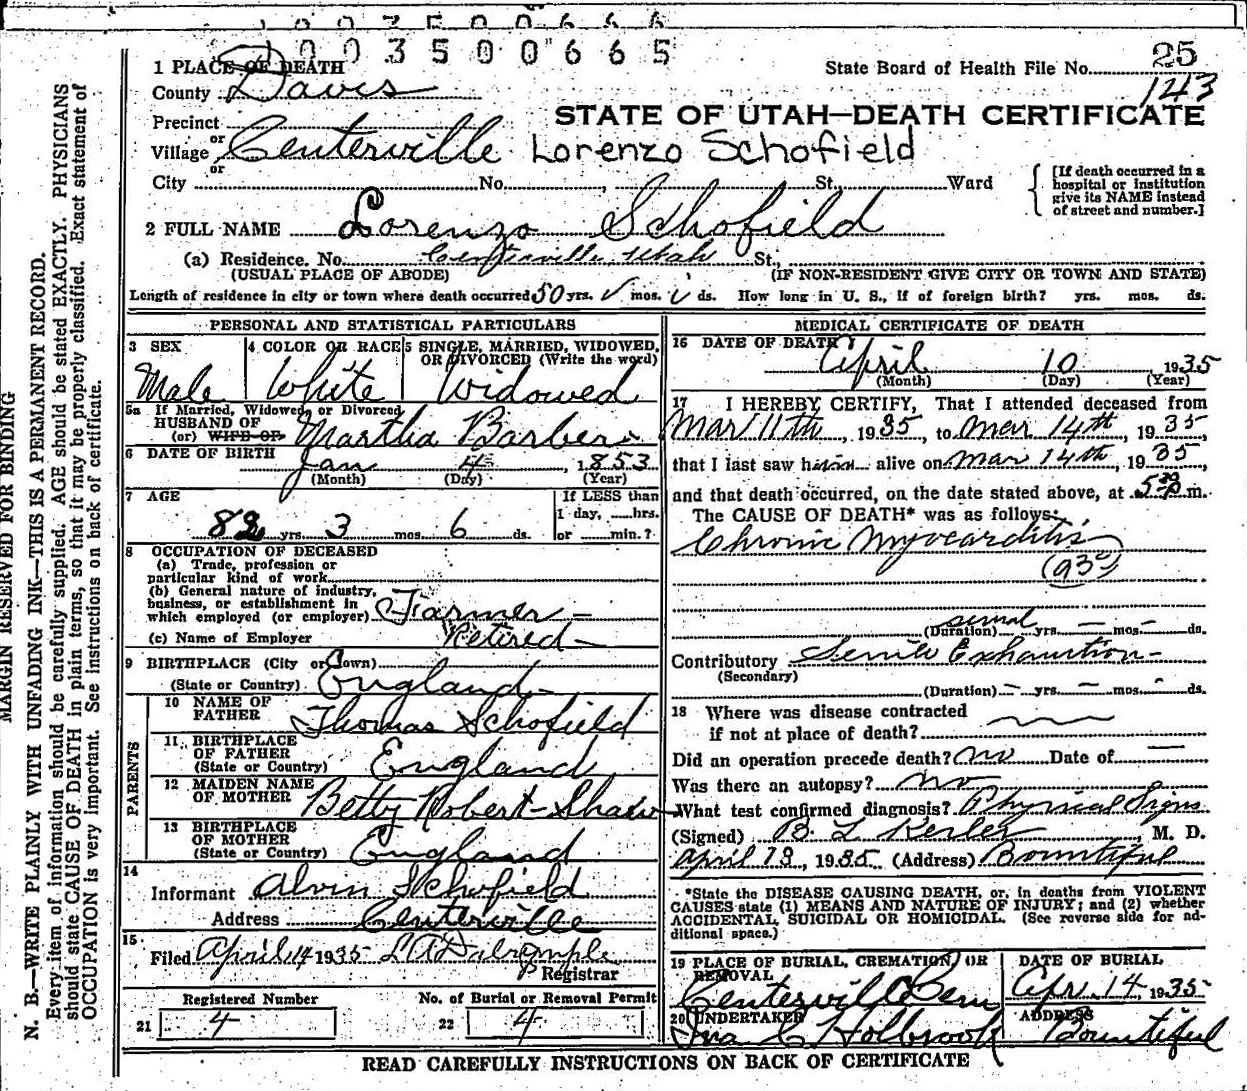 003500665
25
1 PLACE OF DEATH
State Board of Health File No.
143
County Davis
STATE OF UTAH—DEATH CERTIFICATE
Precinct
or
Village Centerville Lorenzo Schofield
or
City No. , St. Ward
[If death occurred in a
hospital or institution
give its NAME instead
of street and number.]
2 FULL NAME Lorenzo Schofield
(a) Residence. No. Centerville, Utah St.,
(USUAL PLACE OF ABODE) (IF NON-RESIDENT GIVE CITY OR TOWN AND STATE)
Length of residence in city or town where death occurred 50 yrs. mos. ds. How long in U. S., if of foreign birth? yrs. mos. ds.
PERSONAL AND STATISTICAL PARTICULARS
3 SEX
Male
4 COLOR OR RACE
White
5 SINGLE, MARRIED, WIDOWED,
OR DIVORCED (Write the word)
Widowed
5a If Married, Widowed, or Divorced
HUSBAND OF
(or) WIFE OF Martha Barber
6 DATE OF BIRTH
Jan 4, 1853
(Month) (Day) (Year)
7 AGE
82 yrs. 3 mos. 6 ds.
If LESS than
1 day, hrs.
or min.?
8 OCCUPATION OF DECEASED
(a) Trade, profession or
particular kind of work
(b) General nature of industry,
business, or establishment in
which employed (or employer) Farmer —
(c) Name of Employer Retired —
9 BIRTHPLACE (City or town)
(State or Country) England —
PARENTS
10 NAME OF
FATHER Thomas Schofield
11 BIRTHPLACE
OF FATHER
(State or Country) England
12 MAIDEN NAME
OF MOTHER Betty Robert-Shaw
13 BIRTHPLACE
OF MOTHER
(State or Country) England
14
Informant Alvin Schofield
Address Centerville
15
Filed April 14 1935
Registrar
Registered Number
21 4
No. of Burial or Removal Permit
22 4
MEDICAL CERTIFICATE OF DEATH
16 DATE OF DEATH
April 10, 1935
(Month) (Day) (Year)
17 I HEREBY CERTIFY, That I attended deceased from
Mar 11th, 1935, to Mar 14th, 1935,
that I last saw him alive on Mar 14th, 1935,
and that death occurred, on the date stated above, at m.
The CAUSE OF DEATH* was as follows:
Chronic Myocarditis
(Duration) yrs. — mos. — ds.
Contributory Senile Exhaustion —
(Secondary)
(Duration) — yrs. — mos. - ds.
18 Where was disease contracted
if not at place of death?
Did an operation precede death? no Date of —
Was there an autopsy? no
What test confirmed diagnosis? Physical Signs
(Signed) B. L. , M. D.
April 13, 1935 (Address) Bountiful
*State the DISEASE CAUSING DEATH, or, in deaths from VIOLENT
CAUSES state (1) MEANS AND NATURE OF INJURY; and (2) whether
ACCIDENTAL, SUICIDAL OR HOMICIDAL. (See reverse side for ad-
ditional space.)
19 PLACE OF BURIAL, CREMATION, OR
REMOVAL
Centerville Cem
DATE OF BURIAL
Apr. 14, 1935
20 UNDERTAKER
Ira C Holbrook
ADDRESS
Bountiful
READ CAREFULLY INSTRUCTIONS ON BACK OF CERTIFICATE
MARGIN RESERVED FOR BINDING
N. B.—WRITE PLAINLY WITH UNFADING INK—THIS IS A PERMANENT RECORD.
Every item of information should be carefully supplied. AGE should be stated EXACTLY. PHYSICIANS
should state CAUSE OF DEATH in plain terms, so that it may be properly classified. Exact statement of
OCCUPATION is very important. See instructions on back of certificate.